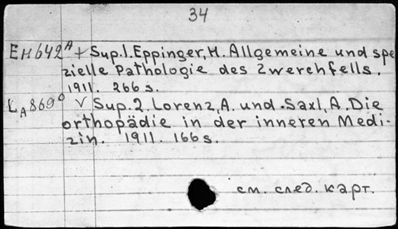 34
EH642A + Sup.1. Eppinger, H. Allgemeine und spe
zielle Pathologie des Zwerchfells.
1911. 266 s.
LA8690 V Sup.2. Lorenz, A. und Saxl, A. Die
orthopädie in der inneren Medi-
zin. 1911. 166 s.
см. след. карт.